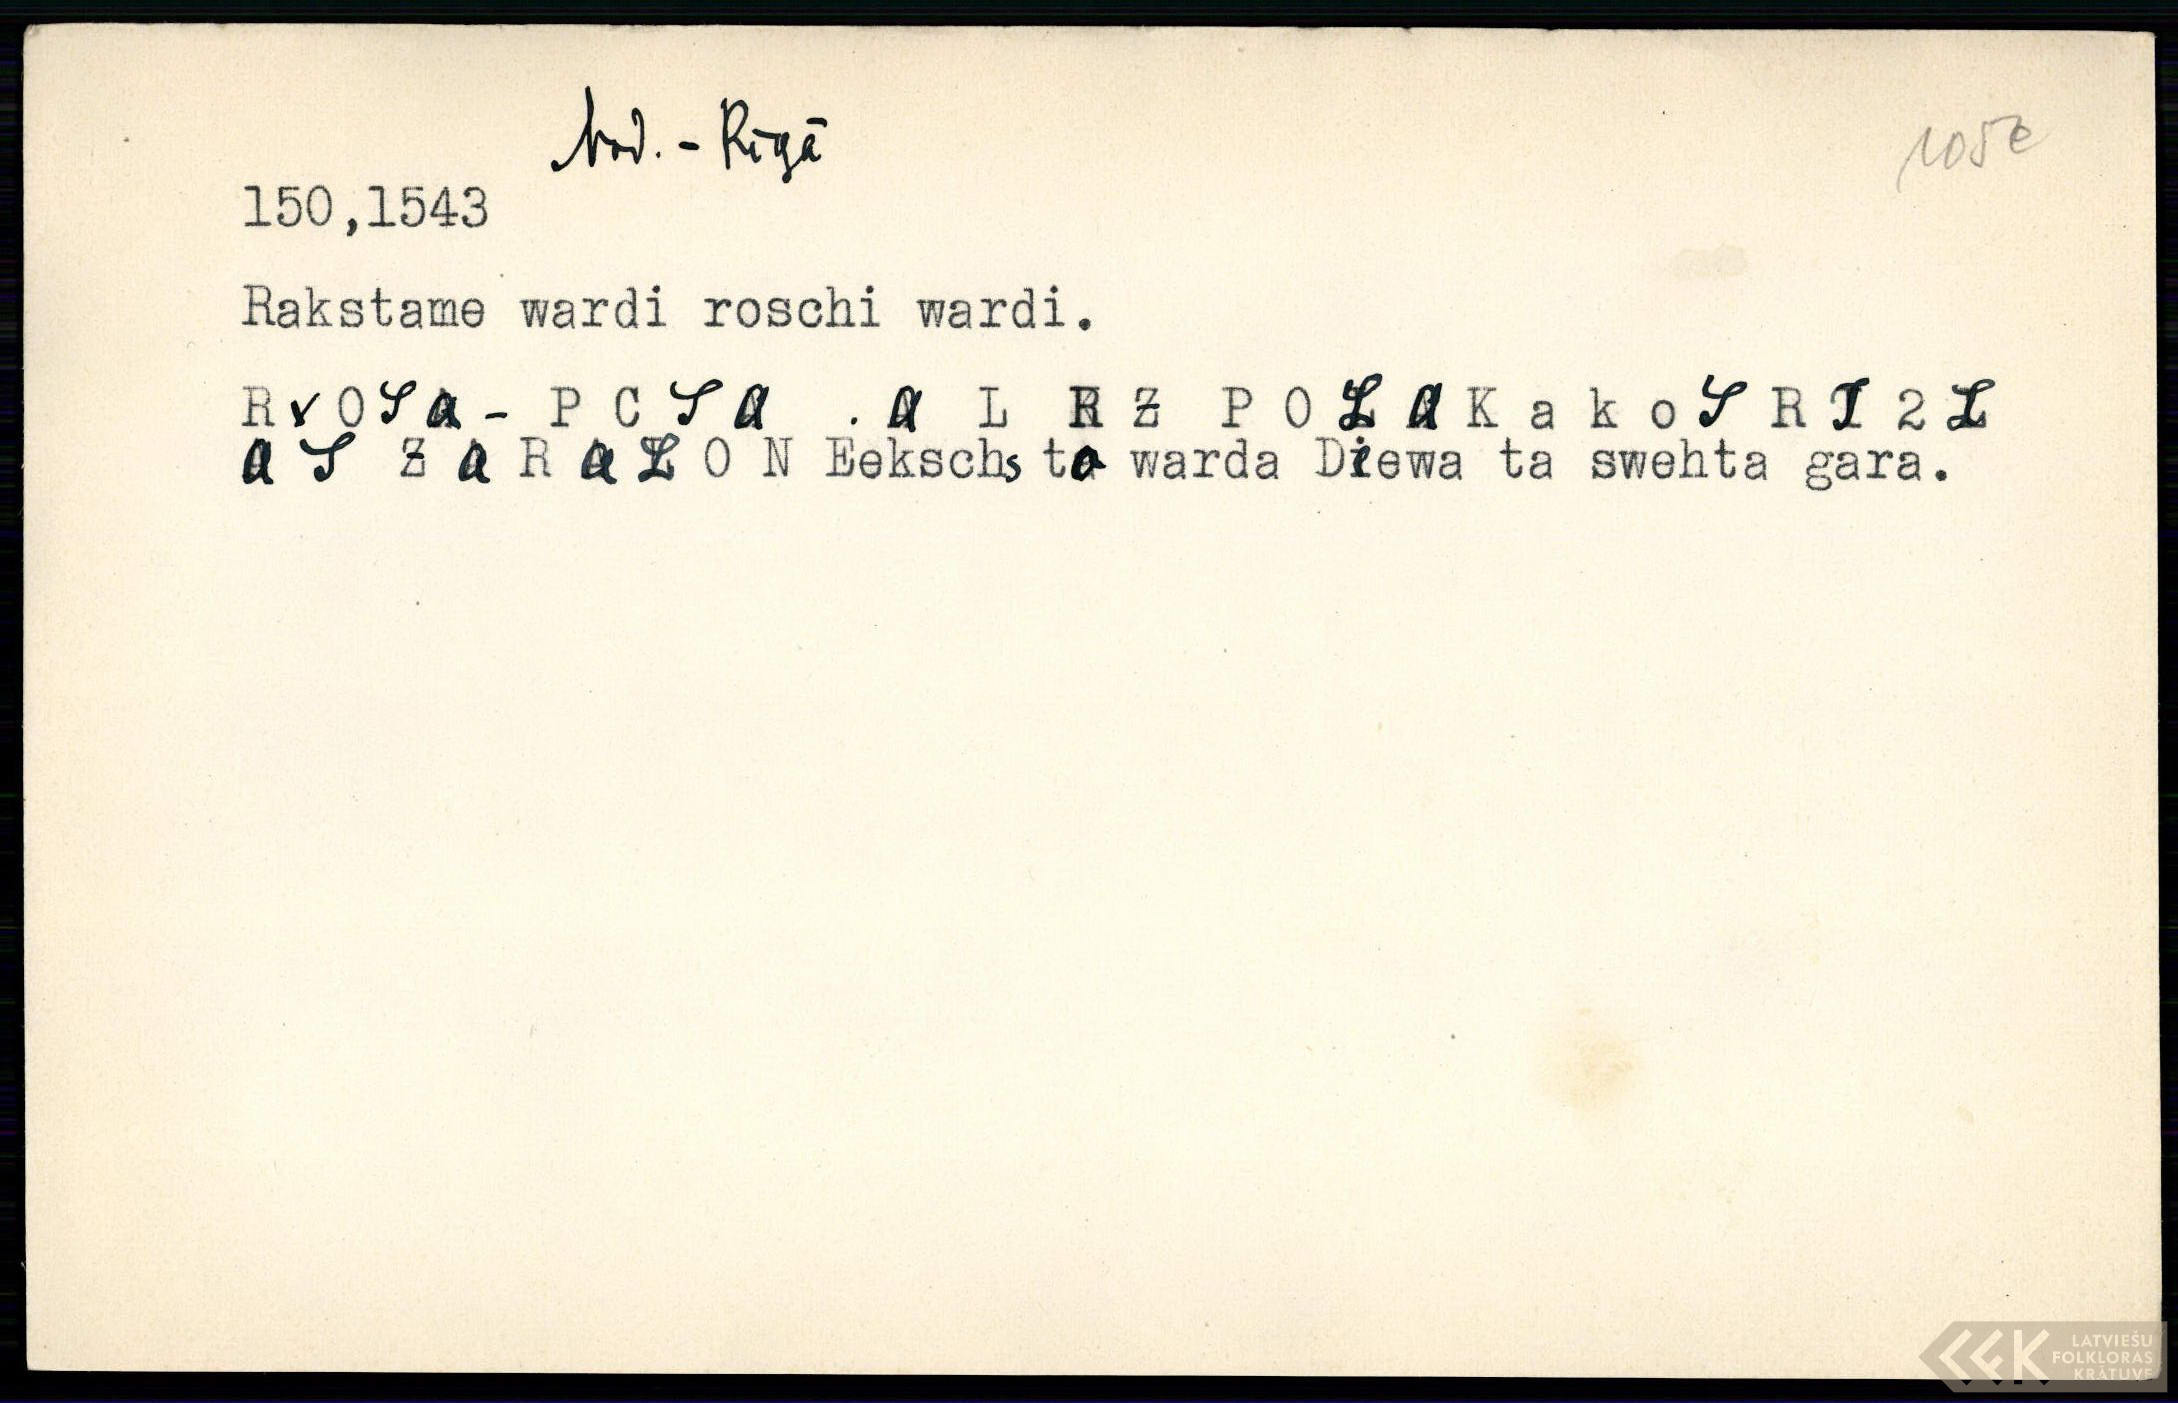 Nod. - Rīgā
rose
150,1543
Rakstame wardi roschi wardi.
R v O S a - P C S A . A L R Z P O L A K a k o S R I 2 L
A S Z A R A L O N Eekschs to warda Diewa ta swehta gara.
LATVIEŠU
FOLKLORAS
KRĀTUVE